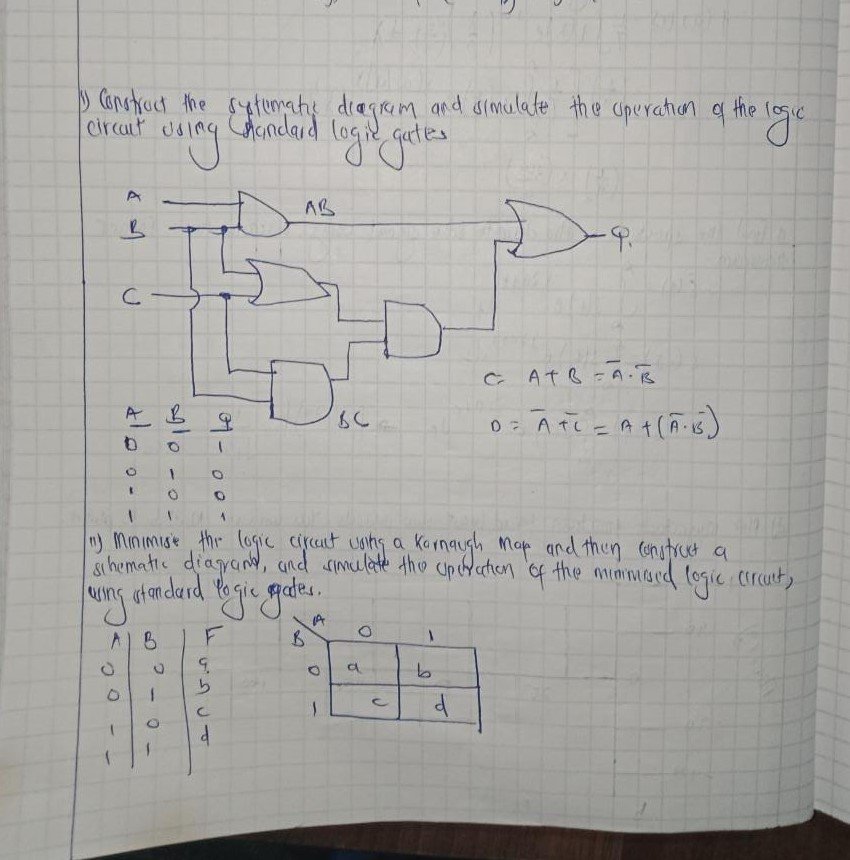 i) Construct the systematic diagram and simulate the operation of the logic
circuit using standard logic gates
A
AB
B
Q.
C
C = A + B = A̅ . B̅
BC
D = A̅ + C̅ = A + (A̅ . B̅)
A B Q
0 0 1
0 1 0
1 0 0
1 1 1
ii) Minimise the logic circuit using a Karnaugh Map and then construct a
schematic diagram, and simulate the operation of the minimised logic circuit,
using standard logic gates.
A B F
0 0 a
0 1 b
1 0 c
1 1 d
A
B 0 1
0 a b
1 c d